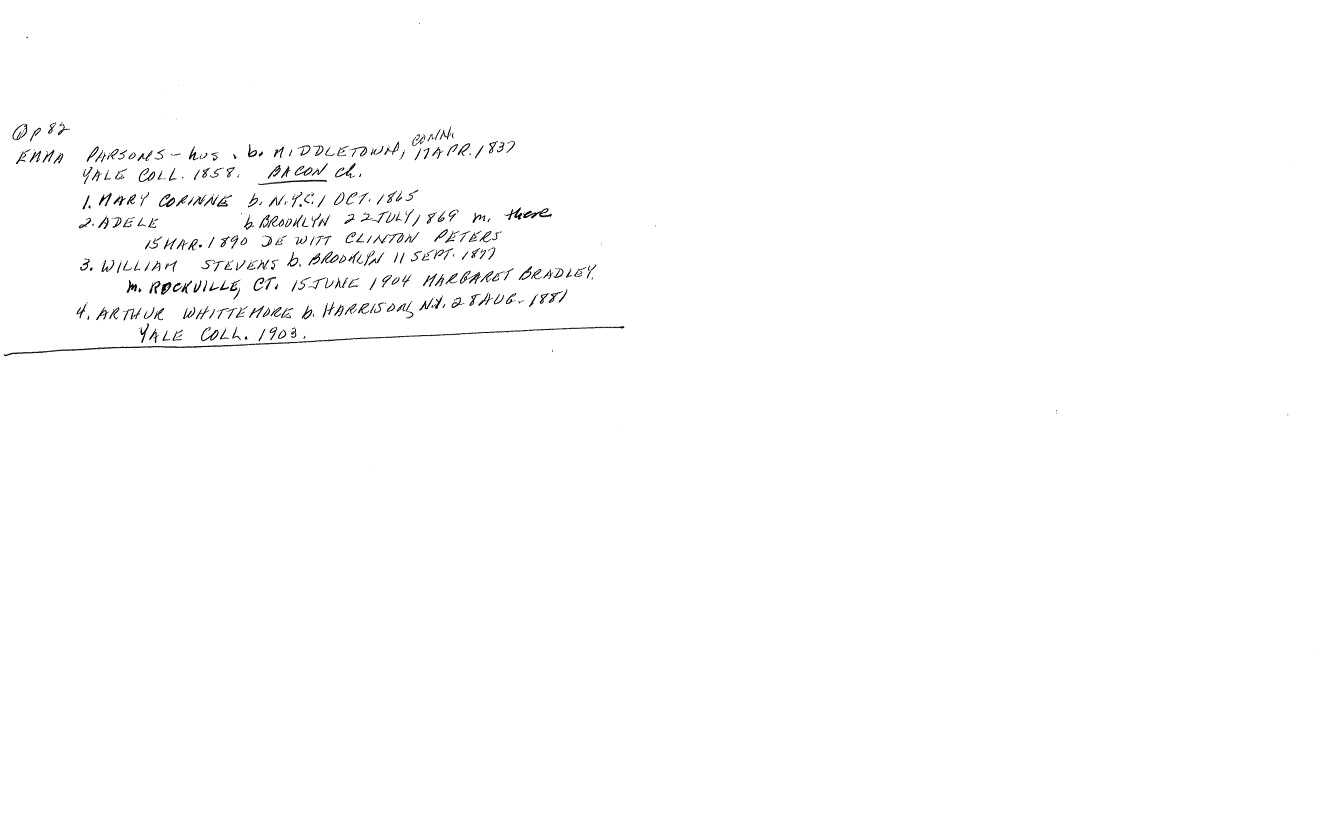 p 82
EMMA PARSONS – hus. b. MIDDLETOWN, CONN. 17 APR. 1837
YALE COLL. 1858. BACON ch.
1. MARY CORINNE b. N.Y.C. 1 OCT. 1865
2. ADELE b. BROOKLYN 22 JULY, 1869 m. there
15 MAR. 1890 DE WITT CLINTON PETERS
3. WILLIAM STEVENS b. BROOKLYN 11 SEPT. 1877
m. ROCKVILLE, CT. 15 JUNE 1904 MARGARET BRADLEY.
4. ARTHUR WHITTEMORE b. HARRISON, N.Y. 28 AUG. 1881
YALE COLL. 1903.